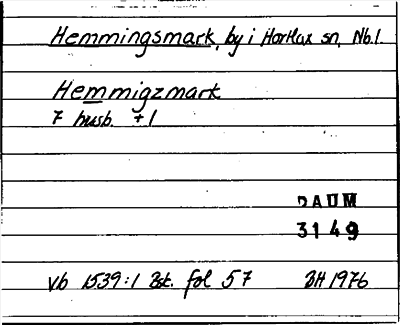 Hemmingsmark, by i Hortlax sn, Nb.l.
Hemmigzmark
7 husb. +1
DAUM
3149
vb 1539:1 Bst. fol 57 BH 1976